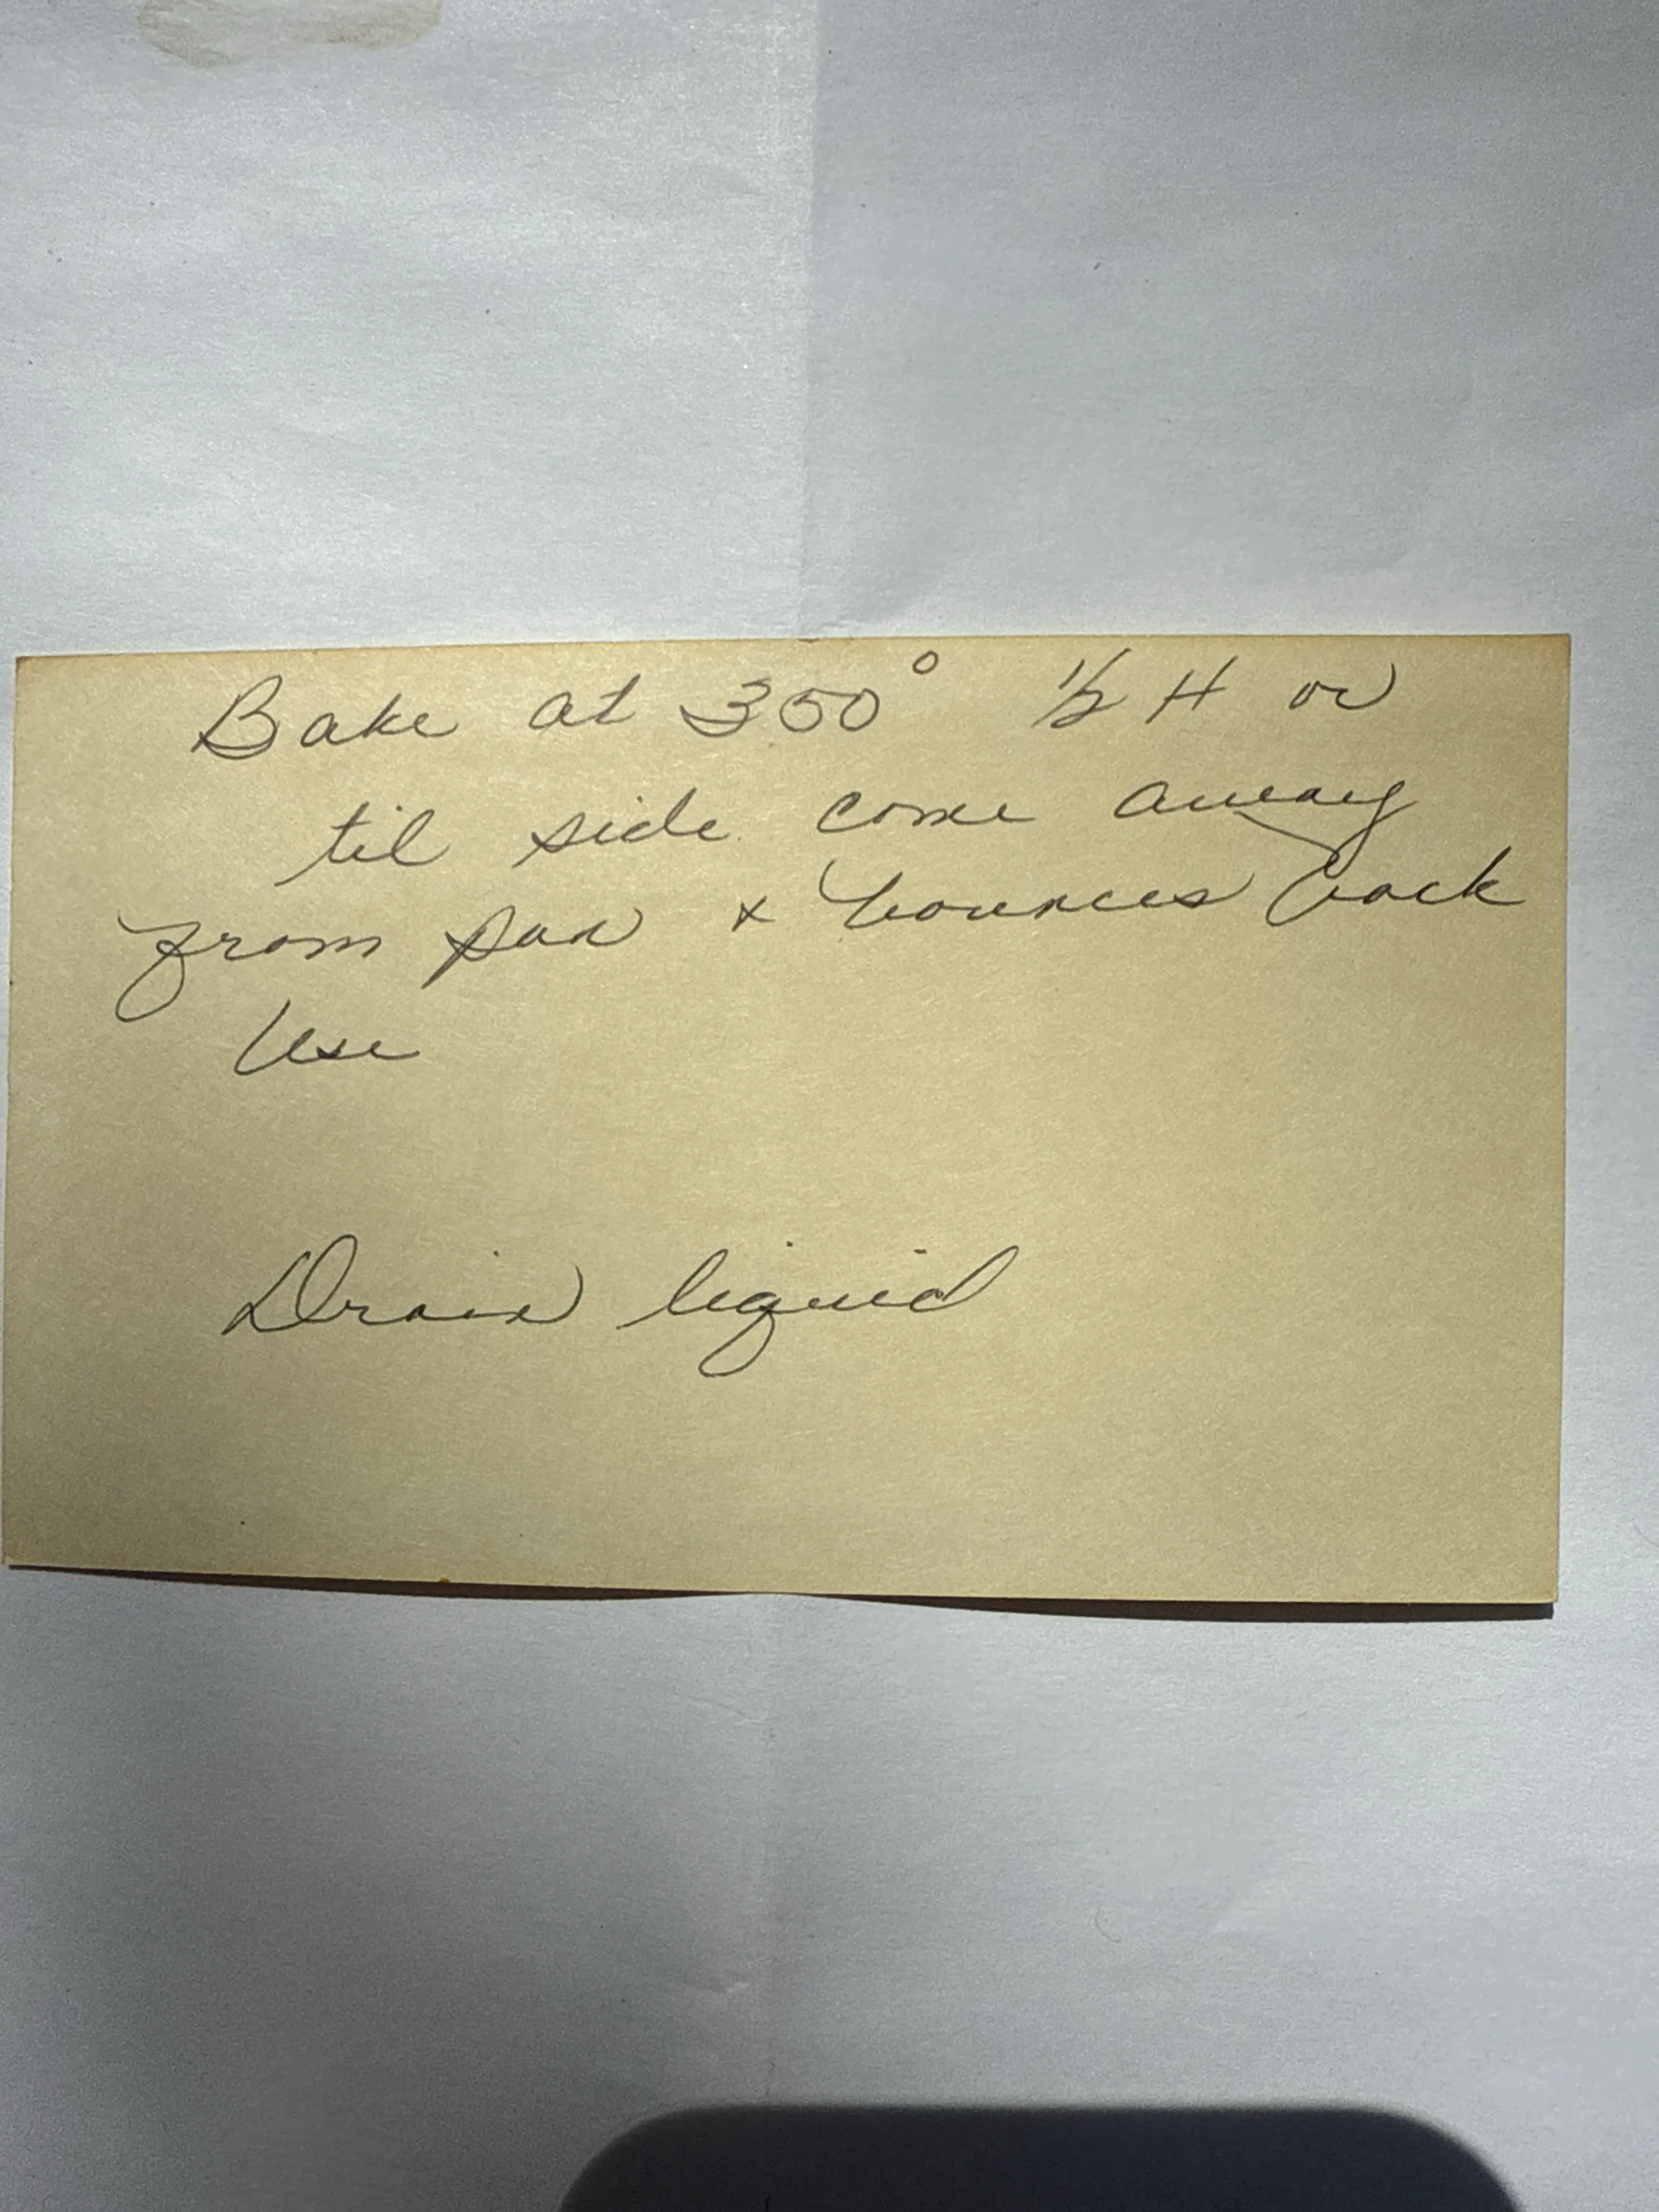 Bake at 350° 1/2 H or
til side come away
from pan & bounces back
Use
Drain liquid